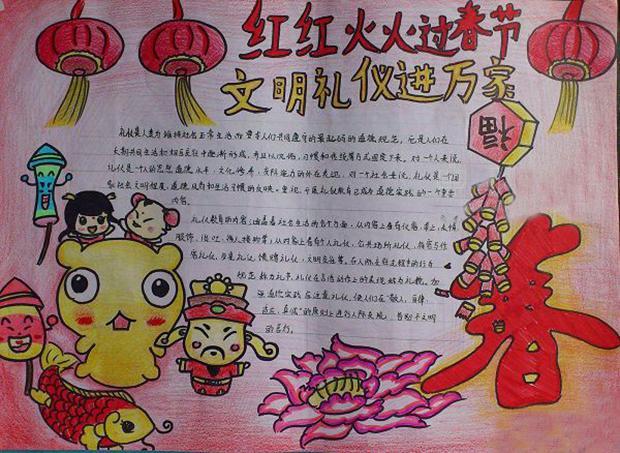 红红火火过春节
文明礼仪进万家
福
礼仪是人类为维持社会正常生活而要求人们共同遵守的最起码的道德规范,它是人们在
长期共同生活和相互交往中逐渐形成,并且以风俗、习惯和传统等方式固定下来。对一个人来说,
礼仪是一个人的思想道德水平、文化修养、交际能力的外在表现,对一个社会来说,礼仪是一个国
家社会文明程度、道德风尚和生活习惯的反映。重视、开展礼仪教育已成为道德实践的一个重要
内容。
礼仪教育的内容涵盖着社会生活的各个方面。从内容上看有仪容、举止、表情、
服饰、谈吐、待人接物等;从对象上看有个人礼仪、公共场所礼仪、待客与作
客礼仪、餐桌礼仪、馈赠礼仪、文明交往等。在人际交往过程中的行为
规范称为礼节,礼仪在言语动作上的表现称为礼貌。加
强道德实践应注意礼仪,使人们在"敬人、自律、
适度、真诚"的原则上进行人际交往,告别不文明
的言行。
春